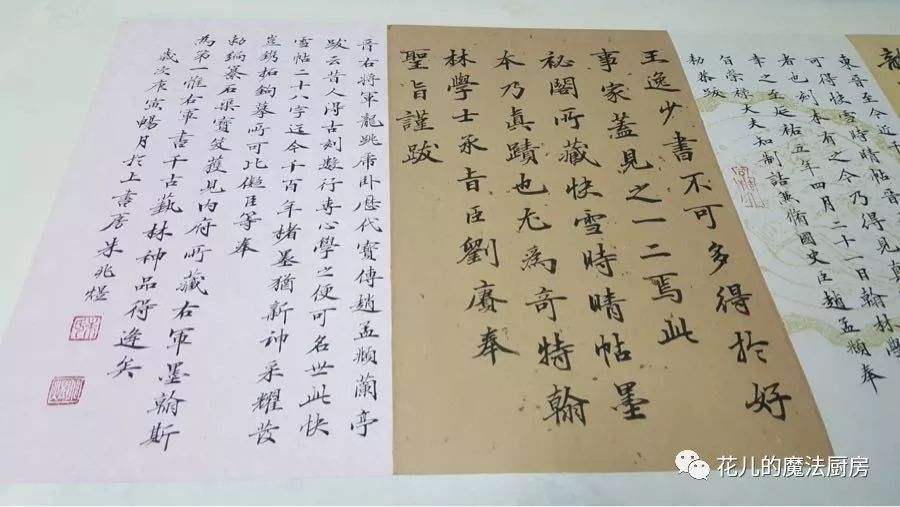 龍
東晉至今近千
可得快雪時晴帖晉
者也刻本有之今乃得見真
幸之至延祐五年四月二十一日翰林學
旨榮祿大夫知制誥兼脩國史臣趙孟頫奉
勅恭跋
王逸少書不可多得於好
事家蓋見之一二焉此
祕閣所藏快雪時晴帖墨
本乃真蹟也尤爲奇特翰
林學士承旨臣劉賡奉
聖旨謹跋
晉右將軍龍跳虎卧歷代寶傳趙孟頫蘭亭
跋云昔人得古刻數行專心學之便可名世此快
雪帖二十八字迄今千百年楮墨猶新神采耀發
豈鐫拓鉤摹所可比儗臣等奉
勅編纂石渠寶笈獲見內府所藏右軍墨翰斯
為第一惟右軍書千古藝林神品得逢矣
歲次庚寅暢月於上書房朱兆煜
花儿的魔法厨房